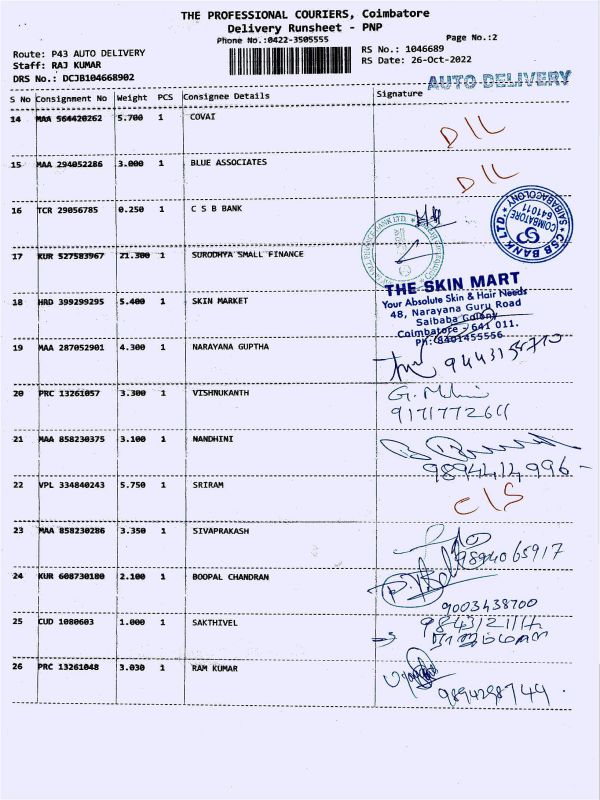 THE PROFESSIONAL COURIERS, Coimbatore
Delivery Runsheet - PNP
Phone No.:0422-3505555
Page No.:2
Route: P43 AUTO DELIVERY
RS No.: 1046689
Staff: RAJ KUMAR
RS Date: 26-Oct-2022
DRS No.: DCJB104668902
AUTO DELIVERY
S No Consignment No Weight PCS Consignee Details Signature
14 MAA 564420262 5.700 1 COVAI
D/L
15 MAA 294052286 3.000 1 BLUE ASSOCIATES
D/L
16 TCR 29056785 0.250 1 C S B BANK
CSB BANK LTD. SAIBABACOLONY
COIMBATORE
641011
17 KUR 527583967 21.300 1 SURODHYA SMALL FINANCE
THE SKIN MART
Your Absolute Skin & Hair Needs
48, Narayana Guru Road
Saibaba Colony
Coimbatore - 641 011.
Ph: 8401455556
18 HRD 399299295 5.400 1 SKIN MARKET
19 MAA 287052901 4.300 1 NARAYANA GUPTHA
20 PRC 13261057 3.300 1 VISHNUKANTH
9171772611
21 MAA 858230375 3.100 1 NANDHINI
9894414996
22 VPL 334840243 5.750 1 SRIRAM
C/S
23 MAA 858230286 3.350 1 SIVAPRAKASH
9894065917
24 KUR 608730180 2.100 1 BOOPAL CHANDRAN
9003438700
25 CUD 1080603 1.000 1 SAKTHIVEL
26 PRC 13261048 3.030 1 RAM KUMAR
9894298744